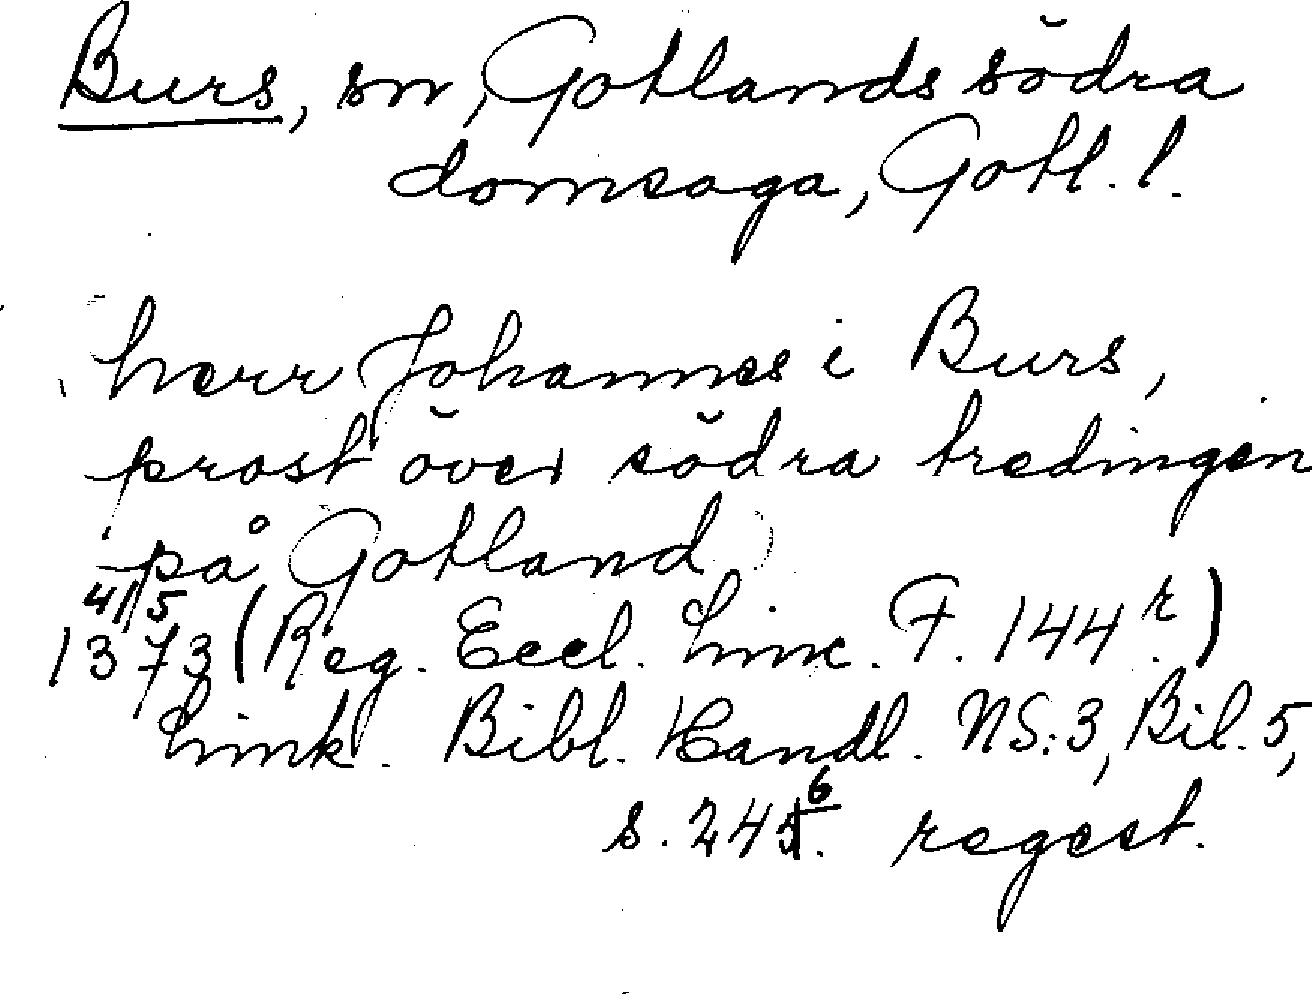 Burs, sn, Gotlands södra
domsaga, Gotl. l.
herr Johannes i Burs,
prost över södra tredingen
på Gotland
4/5
1373 (Reg. Eccl. Linc. F. 144 r.)
Link. Bibl. Handl. NS:3, Bil. 5,
s. 246. regest.